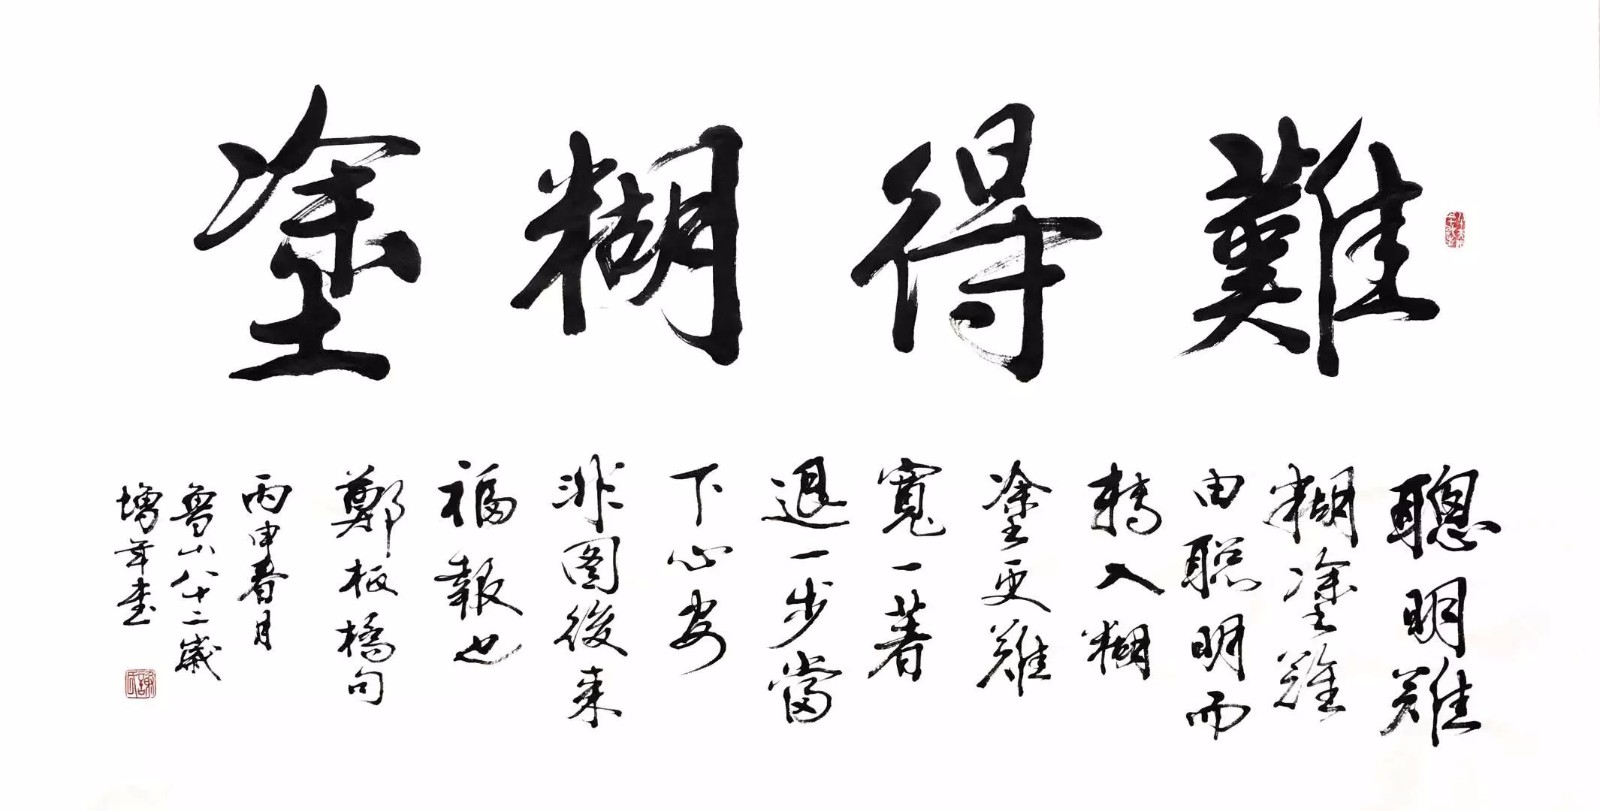 難得糊塗
聰明難
糊塗難
由聰明而
轉入糊
塗更難
寬一著
退一步當
下心安
非图後来
福報也
鄭板橋句
丙申春月
魯山八十二歲
增年书